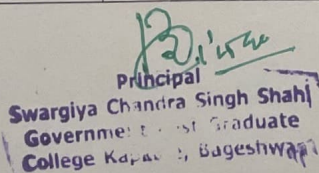 Principal
Swargiya Chandra Singh Shahi
Government Post Graduate
College Bageshwar